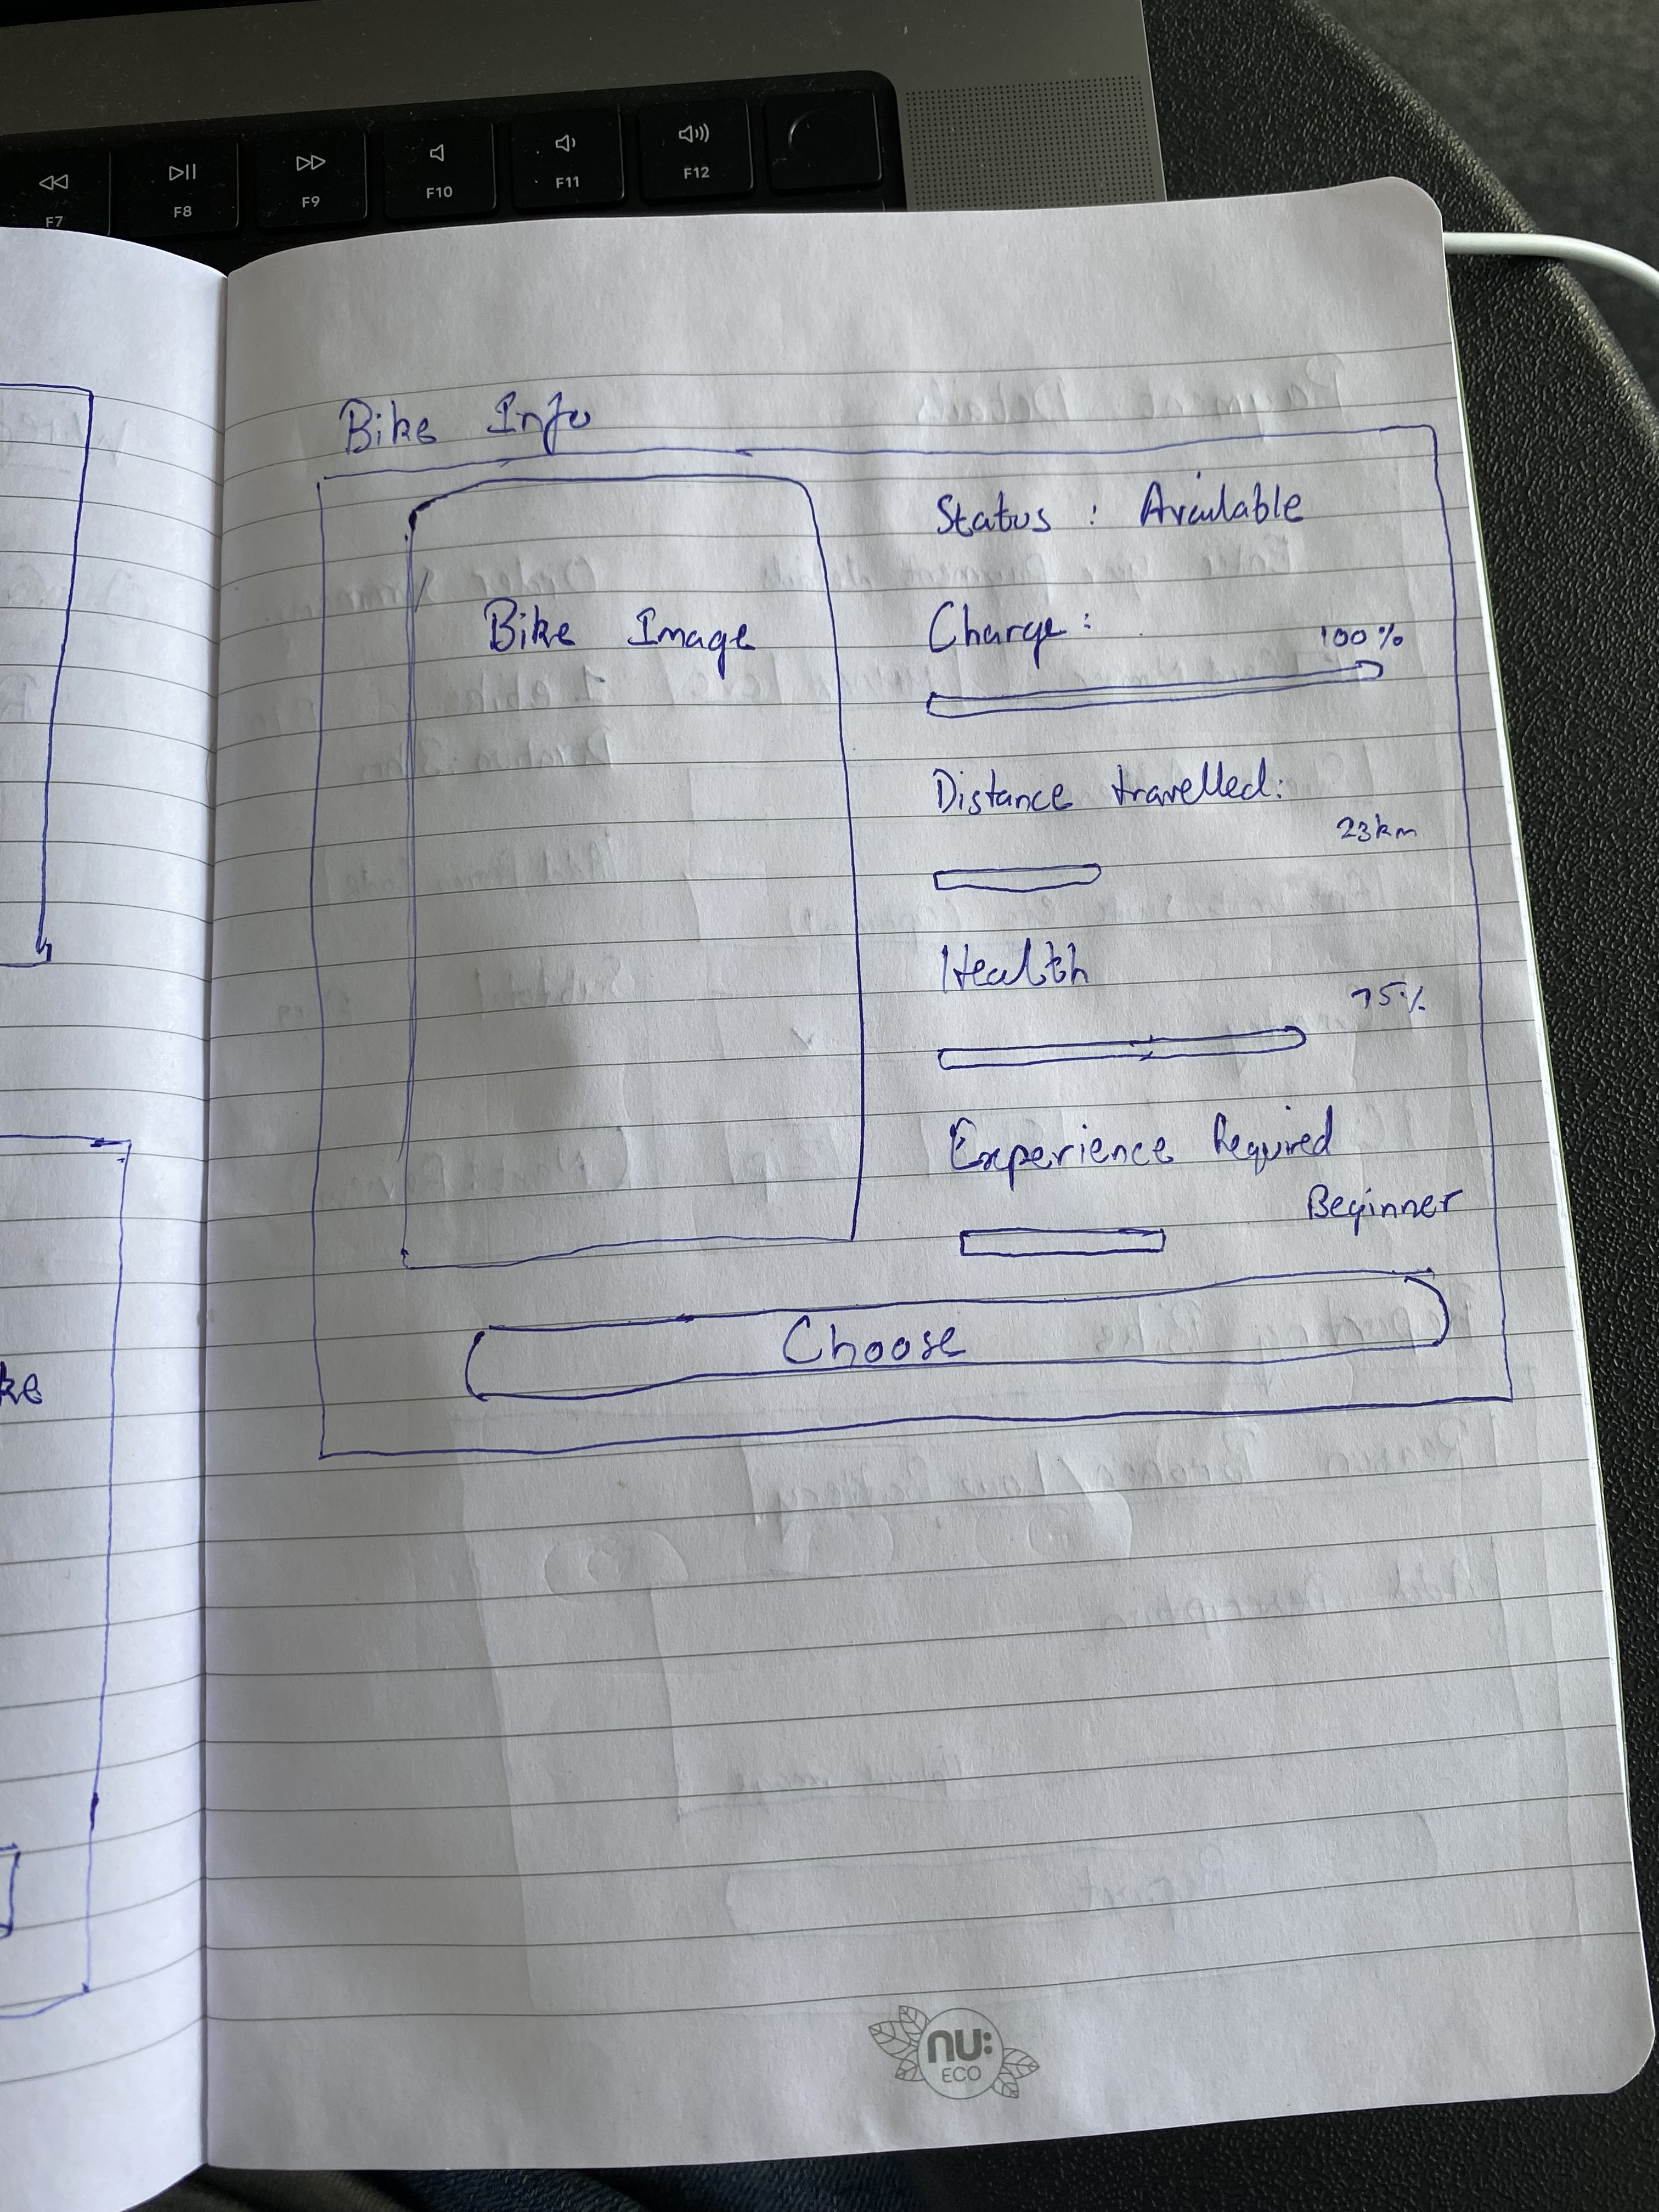 F7
F8
F9
F10
F11
F12
Bike Info
Bike Image
Status : Available
Charge :
100%
Distance travelled:
23km
Health
75%
Experience Required
Beginner
Choose
ke
nu:
ECO